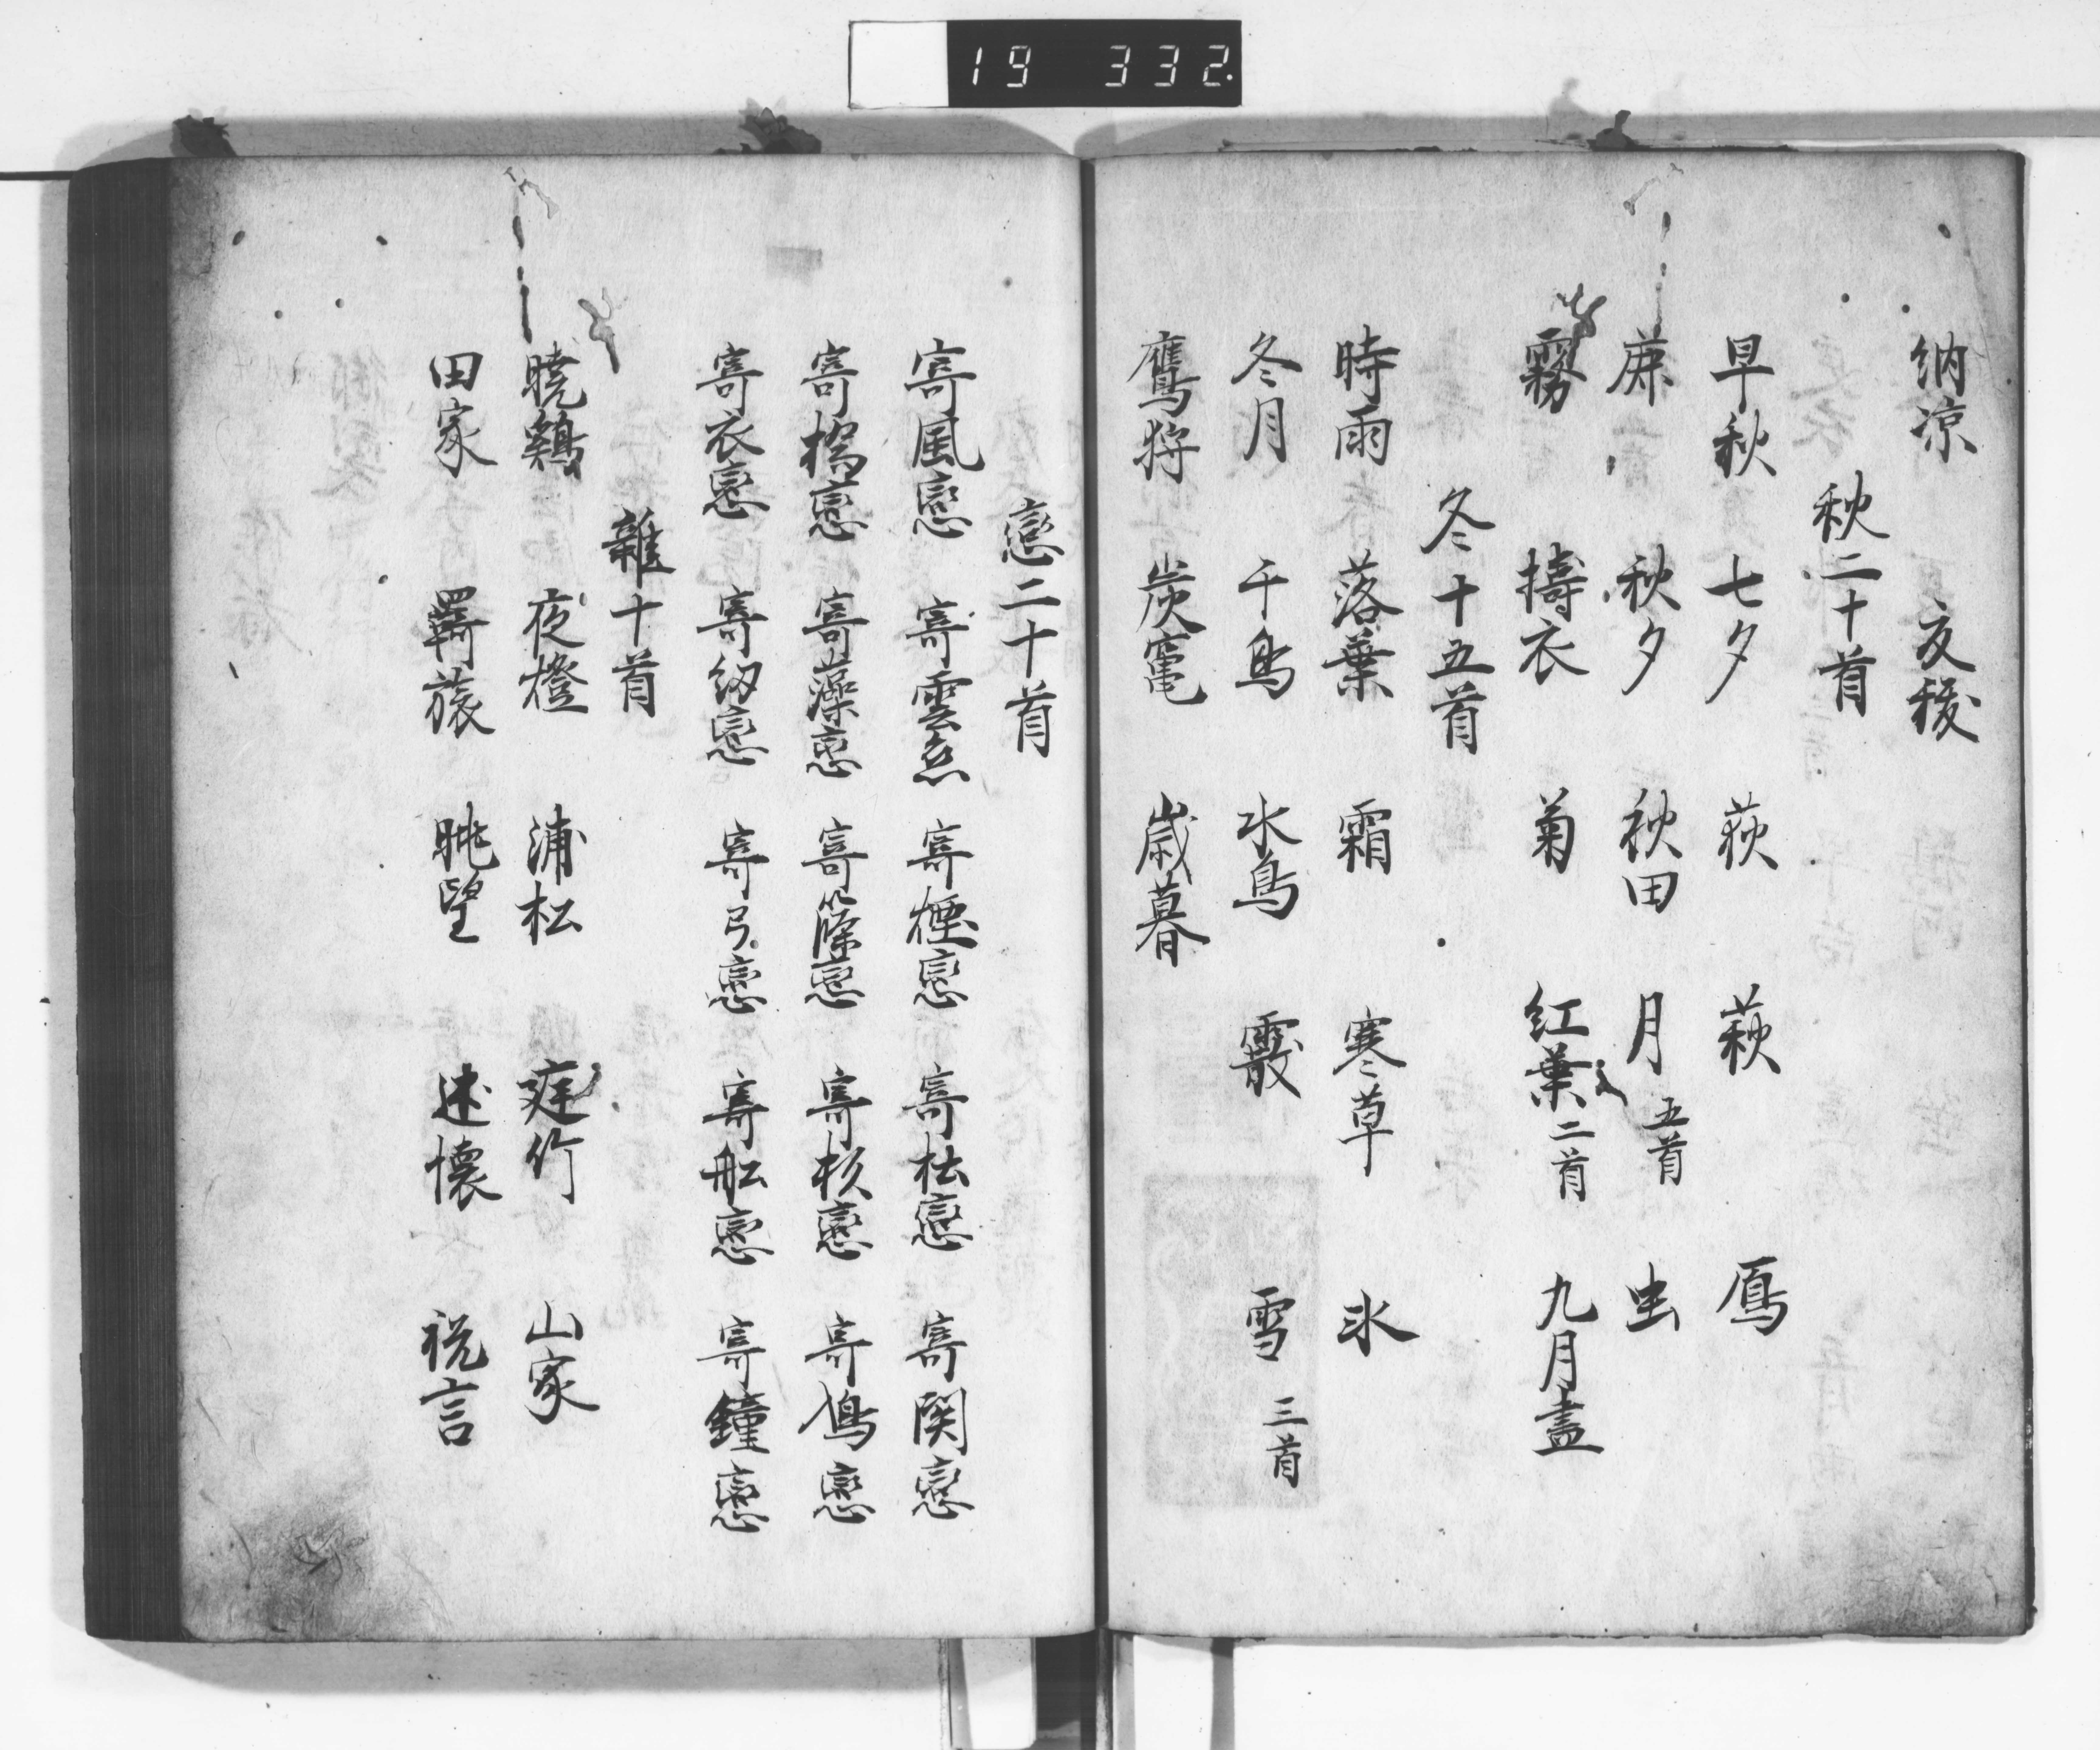 19 332
納涼 夏祓
秋二十首
早秋 七夕 荻 萩 鳫
麻 秋夕 秋田 月 五首 虫
霧 擣衣 菊 紅葉 二首 九月盡
冬十五首
時雨 落葉 霜 寒草 氷
冬月 千鳥 水鳥 霰 雪 三首
鷹狩 炭竃 歳暮
戀二十首
寄風戀 寄雲戀 寄煙戀 寄杜戀 寄関戀
寄橋戀 寄藻戀 寄篠戀 寄杉戀 寄鳰戀
寄衣戀 寄紐戀 寄弓戀 寄舩戀 寄鐘戀
雜十首
曉鶏 夜燈 浦松 庭竹 山家
田家 羇旅 眺望 述懐 祝言